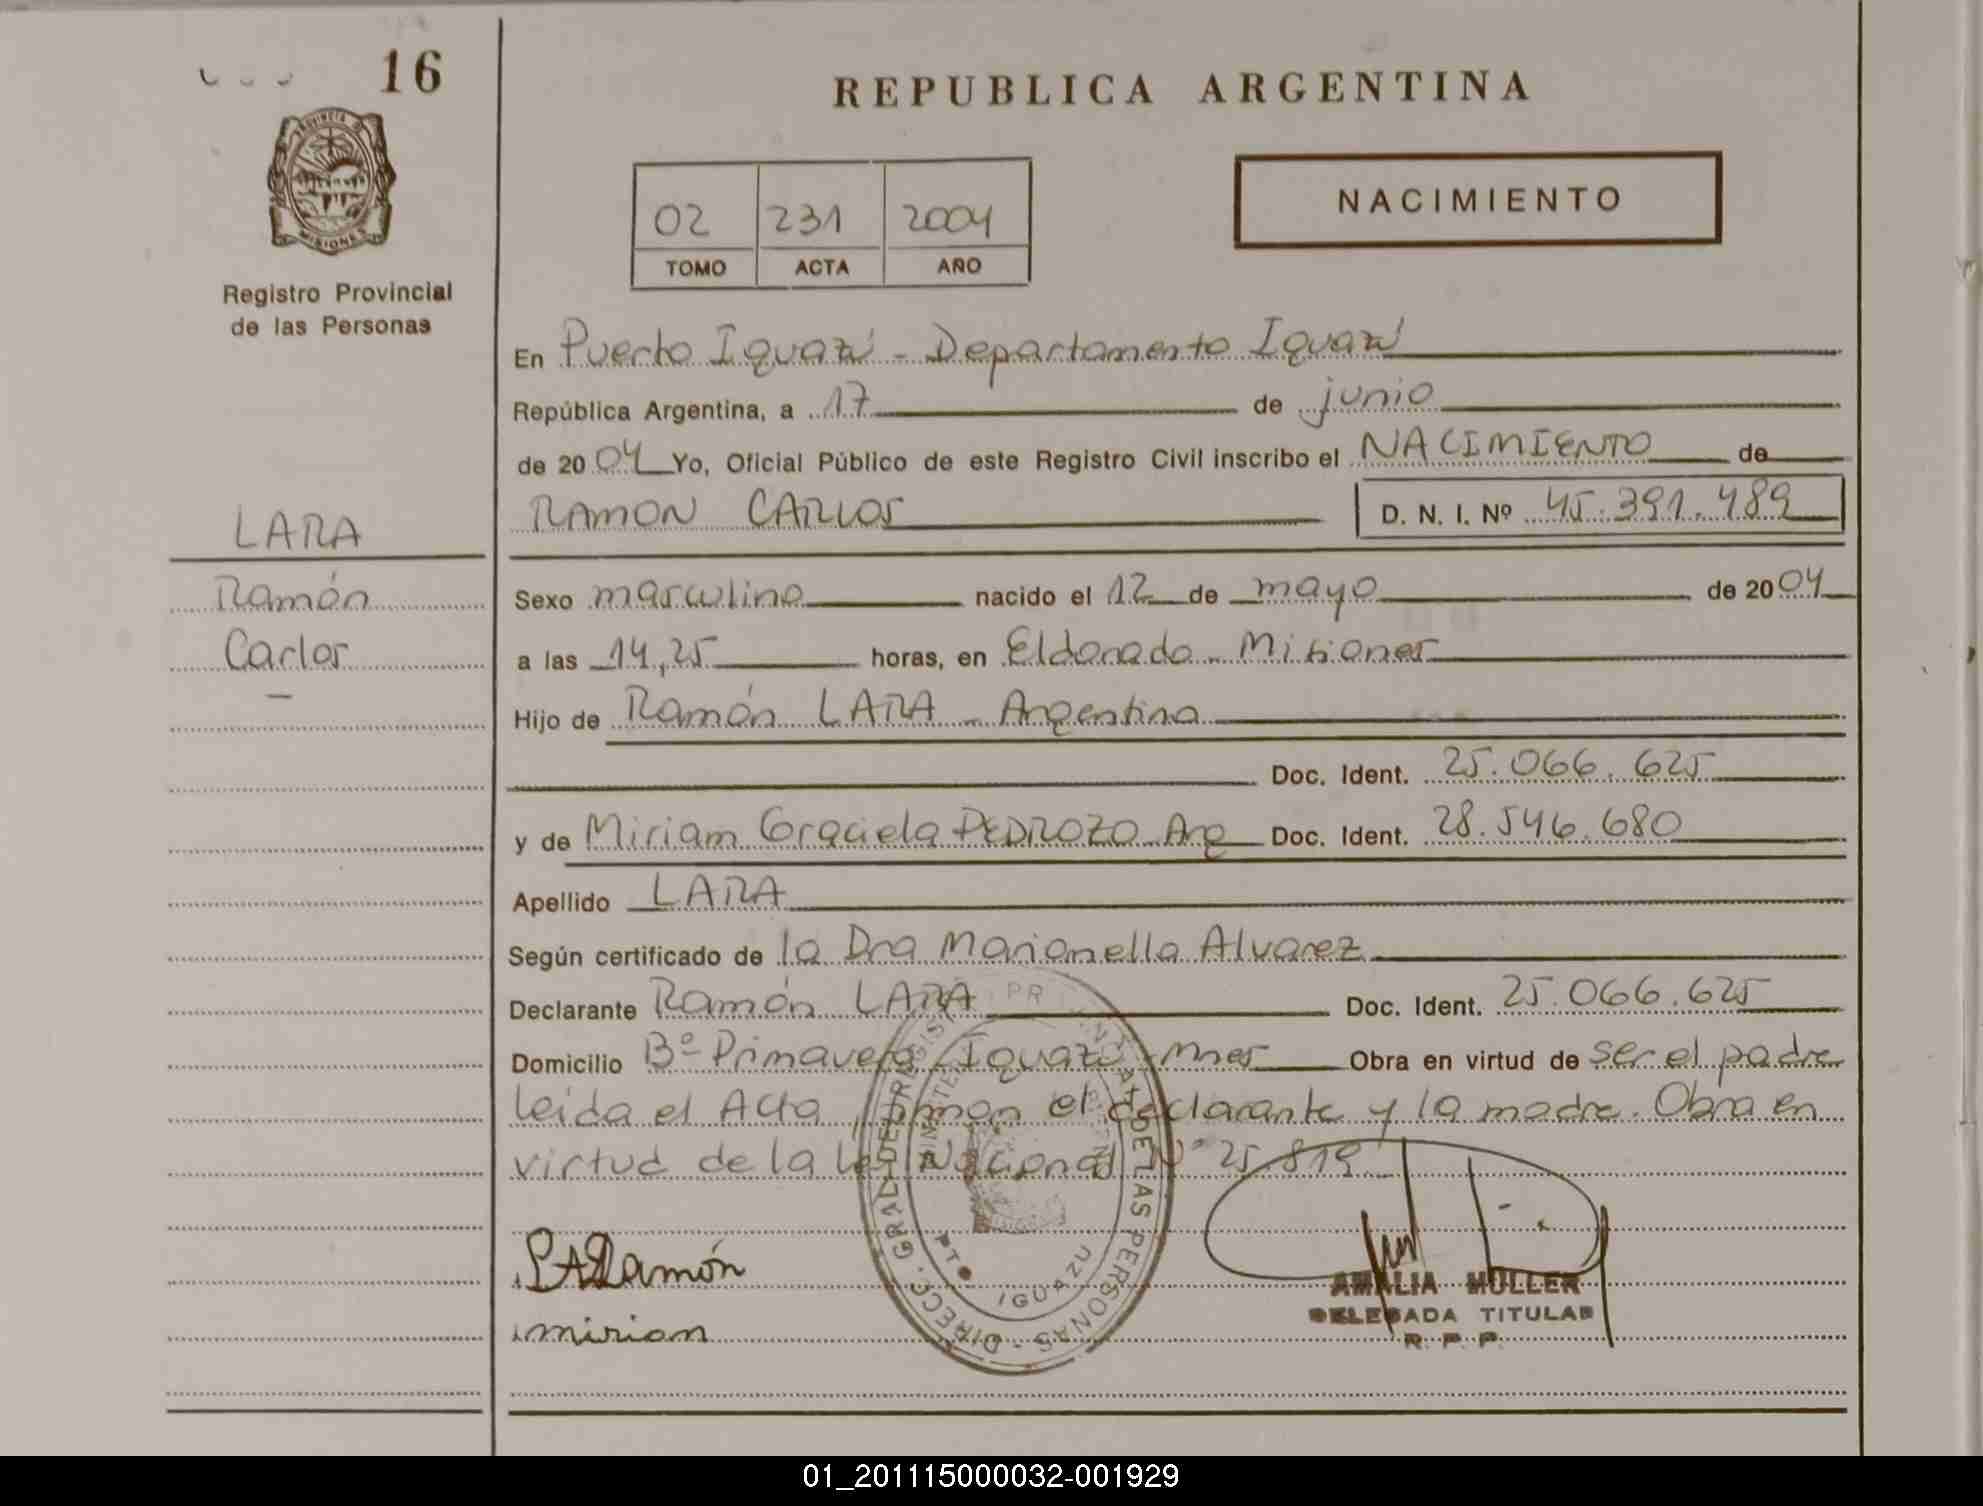 16
REPUBLICA ARGENTINA
PROVINCIA DE
MISIONES
Registro Provincial
de las Personas
NACIMIENTO
02 231 2004
TOMO ACTA AÑO
En Puerto Iguazú - Departamento Iguazú
República Argentina, a 17 de junio
de 2004 Yo, Oficial Público de este Registro Civil inscribo el NACIMIENTO de
RAMON CARLOS D. N. I. Nº 45.391.489
LARA
Ramón
Carlos
Sexo masculino nacido el 12 de mayo de 2004
a las 14,25 horas, en Eldorado - Misiones
Hijo de Ramón LARA - Argentino
Doc. Ident. 25.066.625
y de Miriam Graciela PEDROZO - Arg Doc. Ident. 28.546.680
Apellido LARA
Según certificado de la Dra Marianella Alvarez
Declarante Ramón LARA Doc. Ident. 25.066.625
Domicilio Bº Primavera - Iguazú - Mnes Obra en virtud de ser el padre
leída el Acta, firman el declarante y la madre. Obra en
virtud de la Ley Nacional Nº 25.819
DIRECC. GRAL. DEL REGISTRO PROVINCIAL DE LAS PERSONAS
PTO IGUAZU
Ramón
mirian
AMALIA MULLER
DELEGADA TITULAR
R. P. P.
01_201115000032-001929